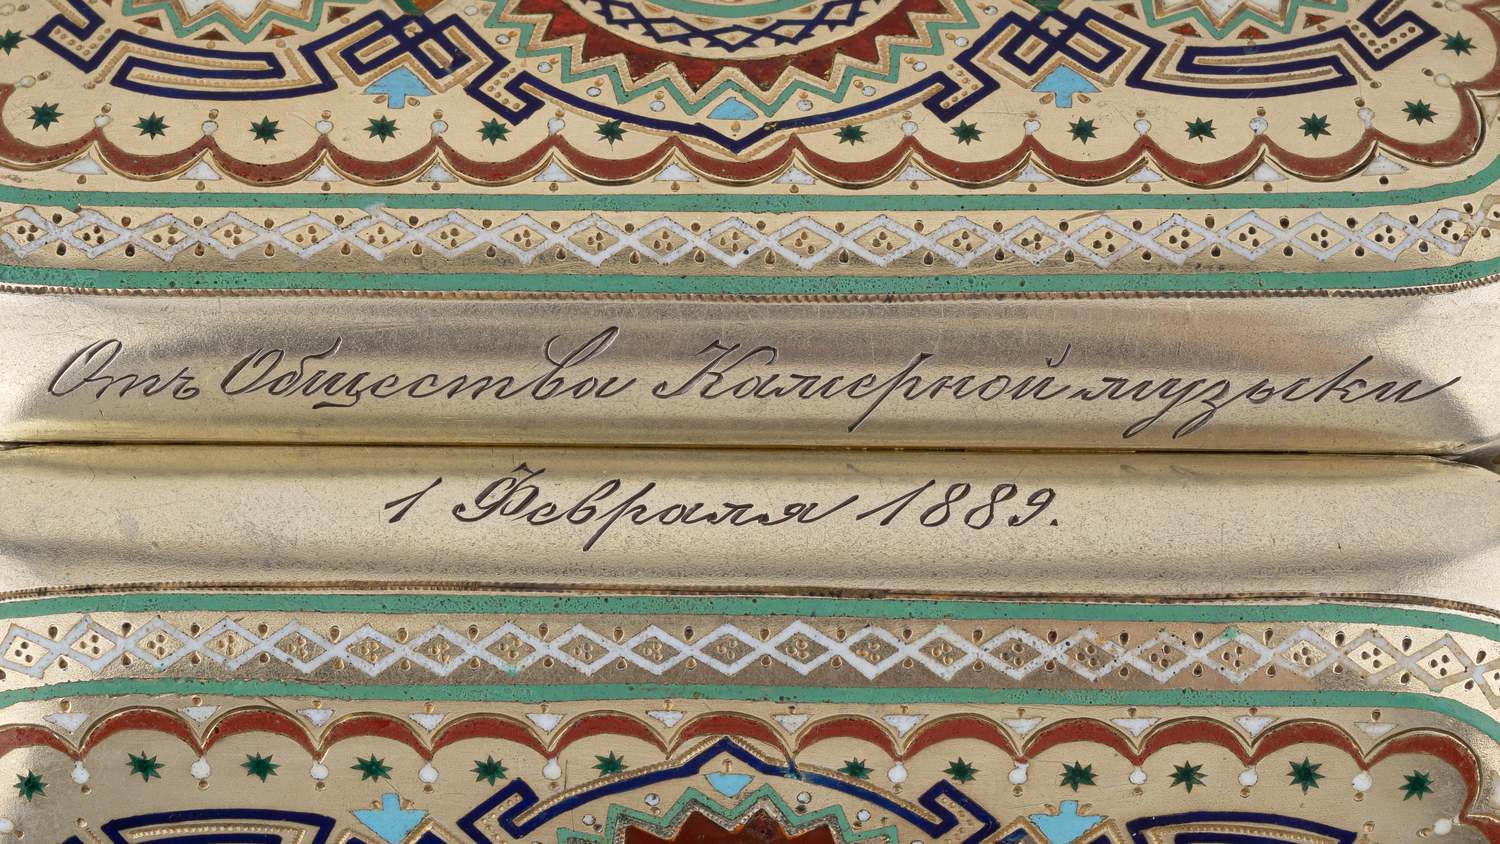 Отъ Общества Камерной музыки
1 Февраля 1889.